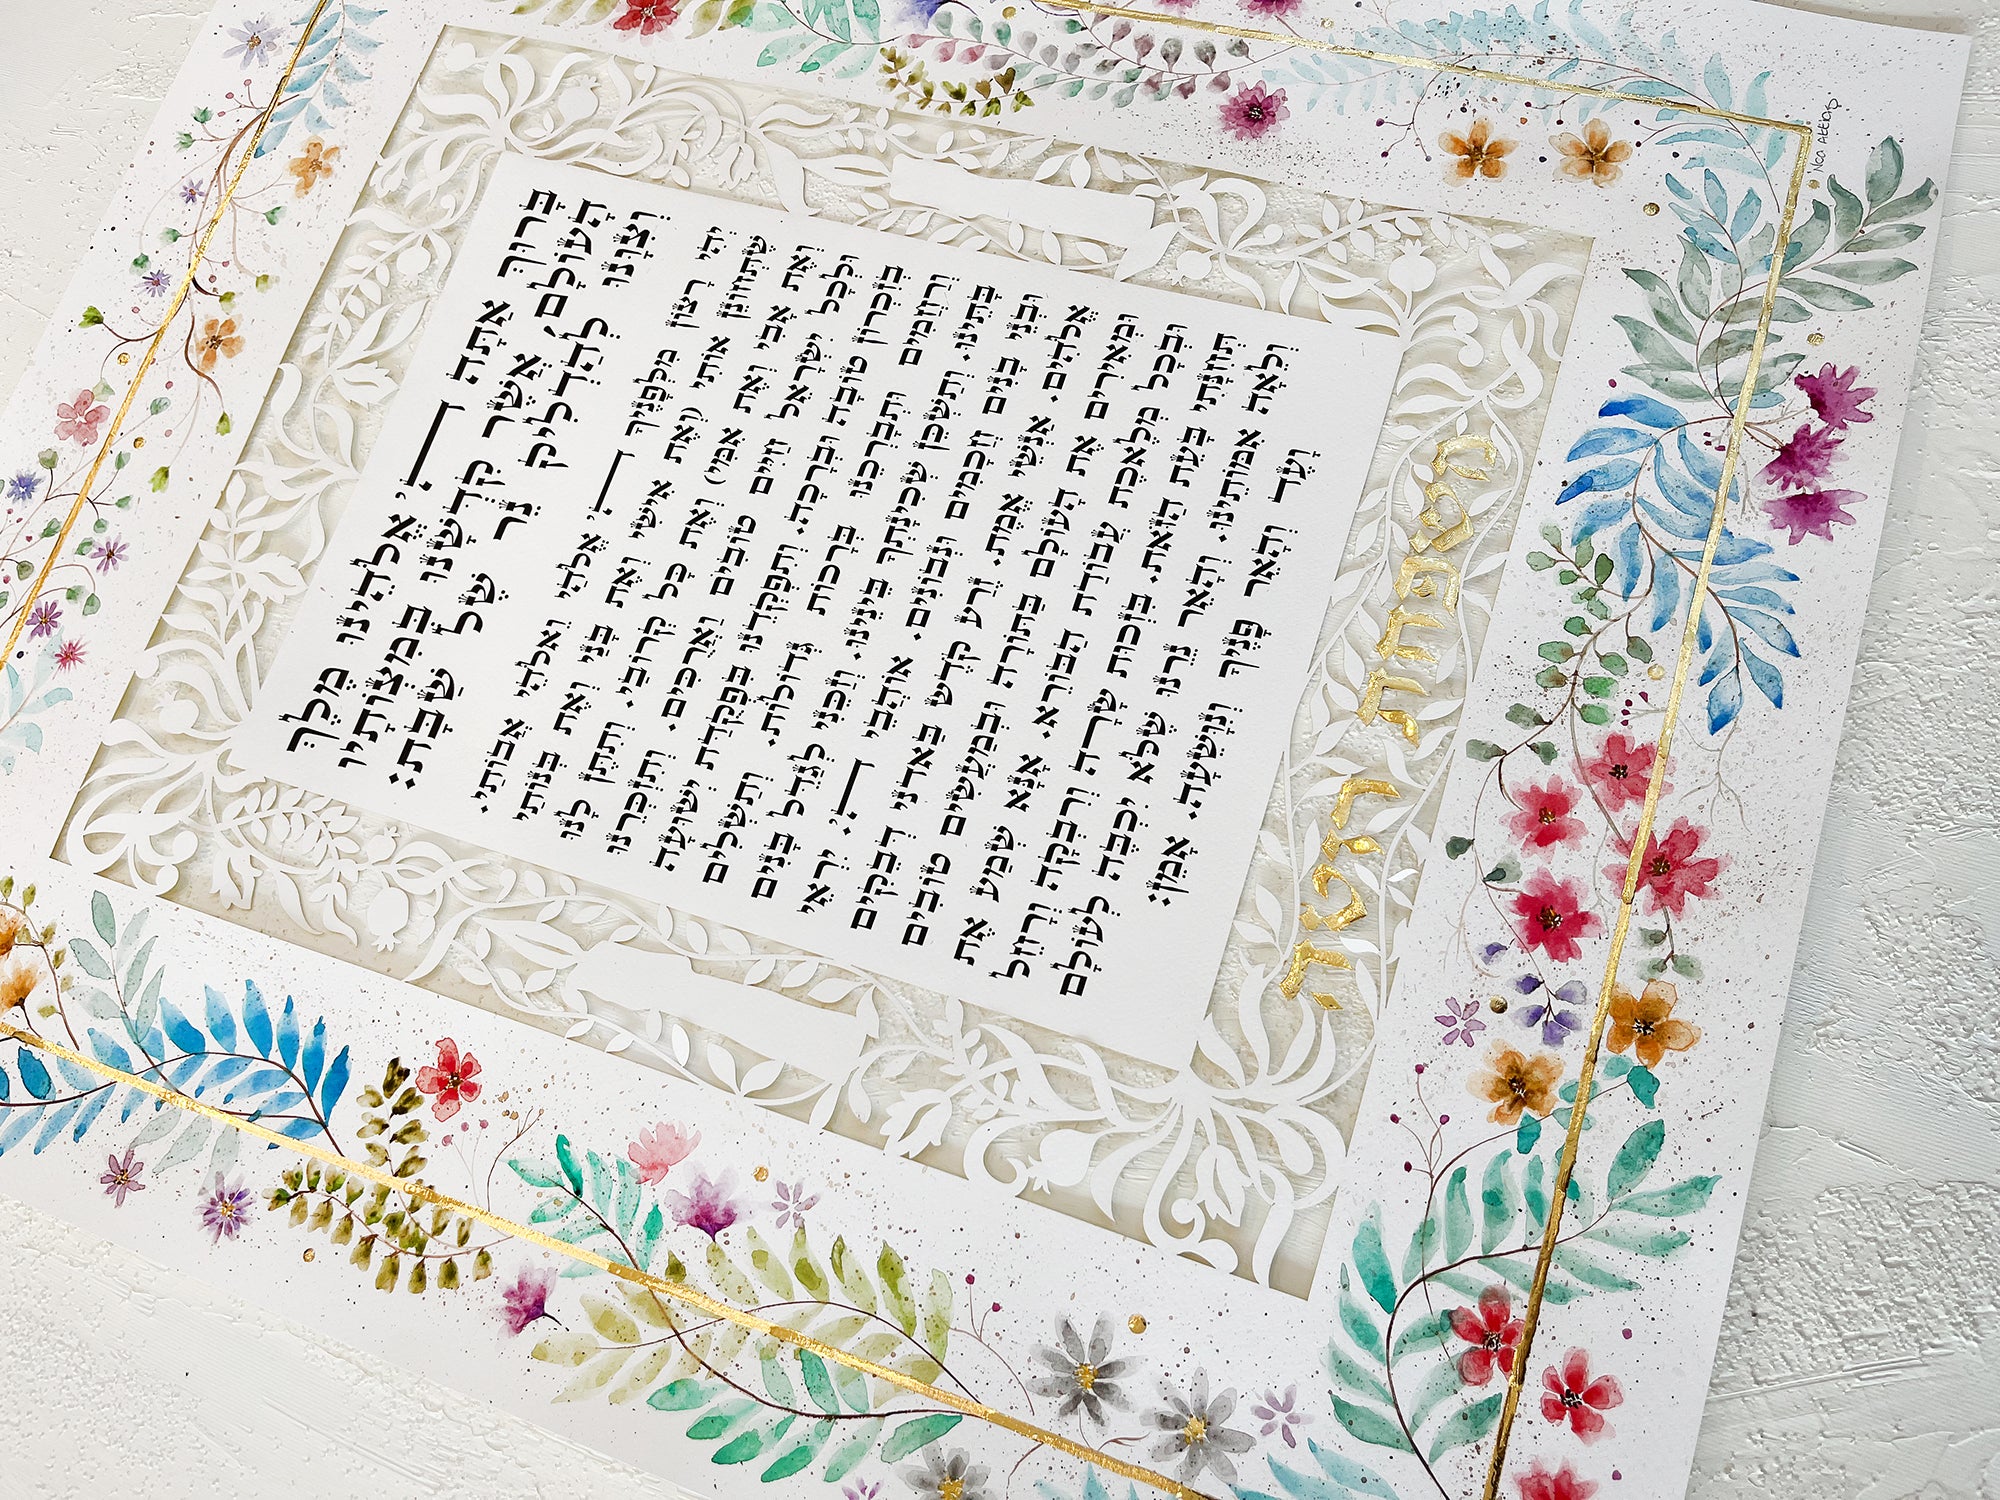 בָּרוּךְ אַתָּה יְיָ אֱלֹהֵינוּ מֶלֶךְ
הָעוֹלָם, אֲשֶׁר קִדְּשָׁנוּ בְּמִצְוֹתָיו
וְצִוָּנוּ לְהַדְלִיק נֵר שֶׁל שַׁבָּת:
יְהִי רָצוֹן מִלְּפָנֶיךָ יְיָ אֱלֹהַי וֵאלֹהֵי אֲבוֹתַי.
שֶׁתְּחוֹנֵן אוֹתִי (וְאֶת אִישִׁי וְאֶת בָּנַי וְאֶת בְּנוֹתַי
וְאֶת אָבִי וְאֶת אִמִּי) וְאֶת כָּל קְרוֹבַי. וְתִתֶּן לָנוּ
וּלְכָל יִשְׂרָאֵל חַיִּים טוֹבִים וַאֲרֻכִּים. וְתִזְכְּרֵנוּ
בְּזִכְרוֹן טוֹבָה וּבְרָכָה. וְתִפְקְדֵנוּ בִּפְקֻדַּת יְשׁוּעָה
וְרַחֲמִים וּתְבָרְכֵנוּ בְּרָכוֹת גְּדוֹלוֹת. וְתַשְׁלִים
בָּתֵּינוּ. וְתַשְׁכֵּן שְׁכִינָתְךָ בֵּינֵינוּ. וְזַכֵּנִי לְגַדֵּל בָּנִים
וּבְנֵי בָנִים חֲכָמִים וּנְבוֹנִים. אוֹהֲבֵי יְיָ. יִרְאֵי
אֱלֹהִים. אַנְשֵׁי אֱמֶת. זֶרַע קֹדֶשׁ בַּאדֹנָי דְּבֵקִים
וּמְאִירִים אֶת הָעוֹלָם בַּתּוֹרָה וּבְמַעֲשִׂים טוֹבִים
וּבְכָל מְלֶאכֶת עֲבוֹדַת הַבּוֹרֵא. אָנָּא שְׁמַע אֶת
תְּחִנָּתִי בָּעֵת הַזֹּאת. בִּזְכוּת שָׂרָה וְרִבְקָה וְרָחֵל
וְלֵאָה אִמּוֹתֵינוּ. וְהָאֵר נֵרֵנוּ שֶׁלֹּא יִכְבֶּה לְעוֹלָם
וָעֶד וְהָאֵר פָּנֶיךָ וְנִוָּשֵׁעָה. אָמֵן:
משפחת